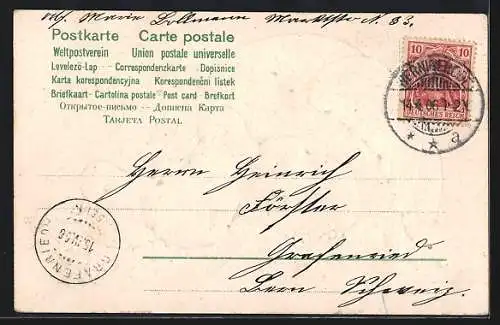 Abs. Marie Bollmann Marktstr. N. 33.
Postkarte Carte postale
Weltpostverein – Union postale universelle
Levelező-Lap – Correspondenzkarte Dopisnice
Karta korespondencyjna Korespondenční listek
Briefkaart – Cartolina postale Post card – Brefkort
Открытое-письмо – Дописна Карта
TARJETA POSTAL
10 10
DEUTSCHES REICH
WERNIGERODE
14.4.06 1-2N
* * a
Herrn Heinrich
Förster
Grafenried
Bern Schweiz.
GRAFENRIED
15.IV.06